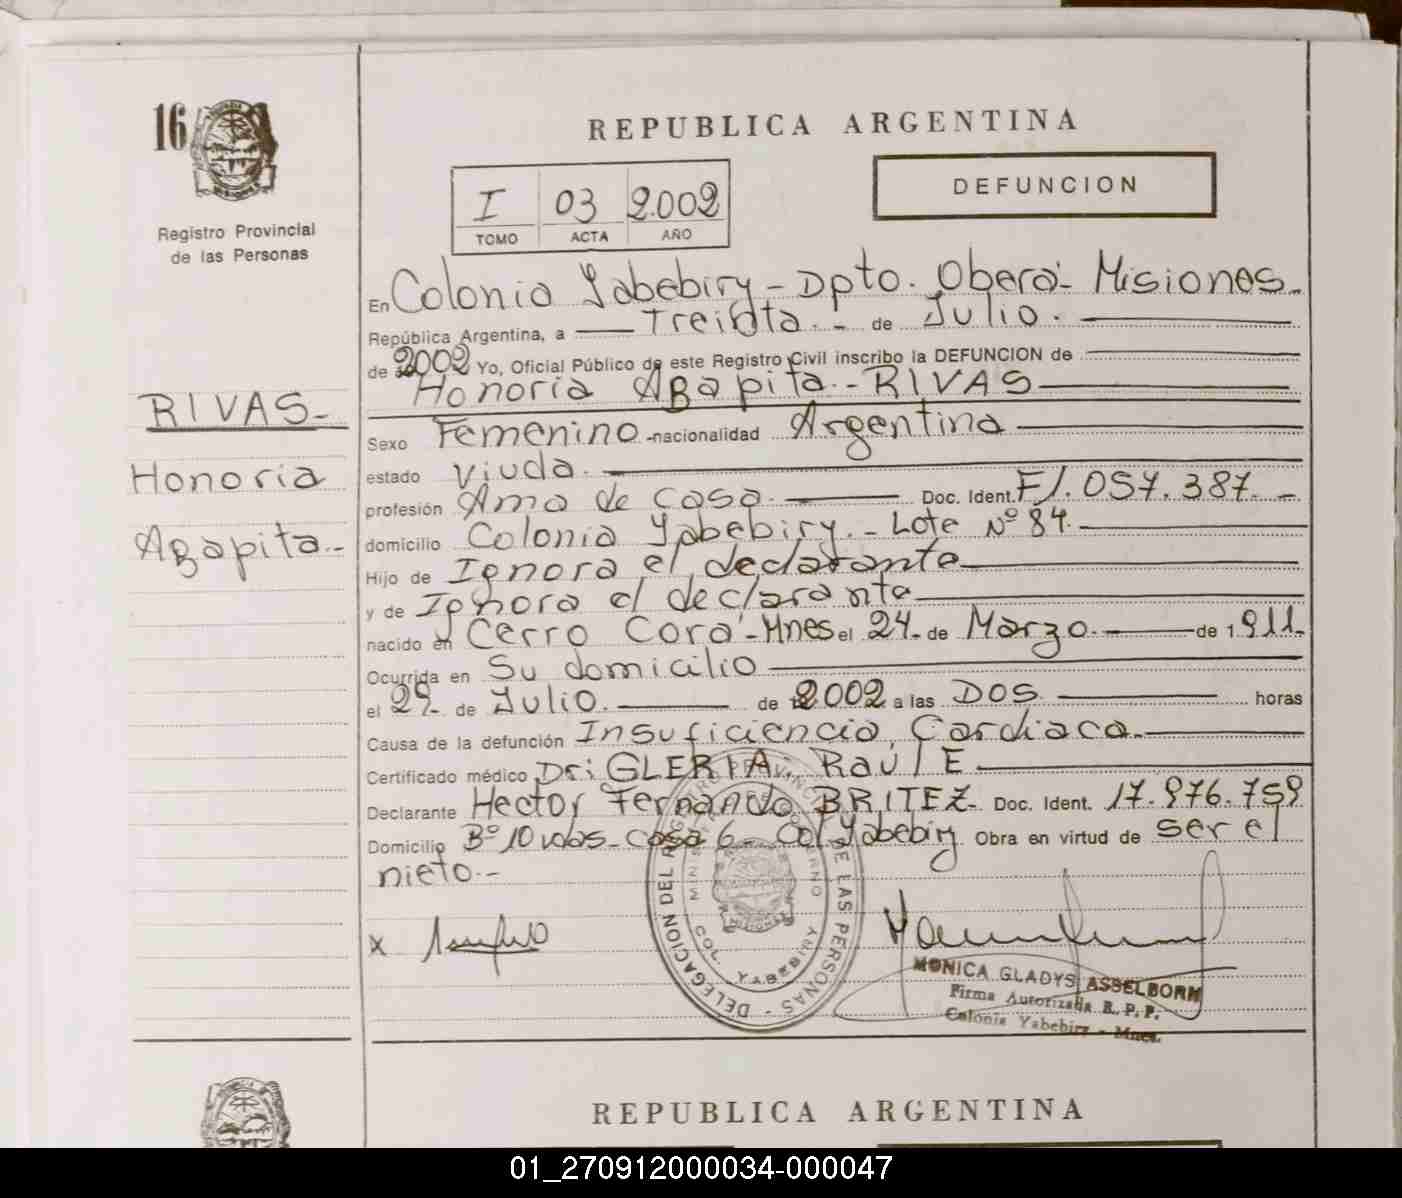 16
Registro Provincial
de las Personas
REPUBLICA ARGENTINA
DEFUNCION
I 03 2.002
TOMO ACTA AÑO
RIVAS-
Honoria
Agapita.-
En Colonia Yabebiry - Dpto. Oberá - Misiones.-
República Argentina, a Treinta.- de Julio.
de 2002 Yo, Oficial Público de este Registro Civil inscribo la DEFUNCION de
Honoria Agapita.- RIVAS
Sexo Femenino -nacionalidad Argentina
estado Viuda.
profesión Ama de casa. Doc. Ident. F/. 057.387.-
domicilio Colonia Yabebiry.- Lote Nº 84.-
Hijo de Ignora el declarante
y de Ignora el declarante
nacido en Cerro Corá - Mnes el 24- de Marzo. de 1911.-
Ocurrida en Su domicilio
el 29- de Julio. de 2002 a las DOS horas
Causa de la defunción Insuficiencia Cardiaca.
Certificado médico Dr: GLERIA, Raúl E
Declarante Hector Fernando BRITEZ- Doc. Ident. 17.976.759
Domicilio Bº 10 vdas- casa 6- Col Yabebiry Obra en virtud de ser el
nieto.-
x
DELEGACION DEL REGISTRO PROVINCIAL DE LAS PERSONAS -
COL. YABEBIRY
MISIONES
MONICA GLADYS ASSELBORN
Firma Autorizada R. P. P.
Colonia Yabebiry - Mnes.
REPUBLICA ARGENTINA
01_270912000034-000047